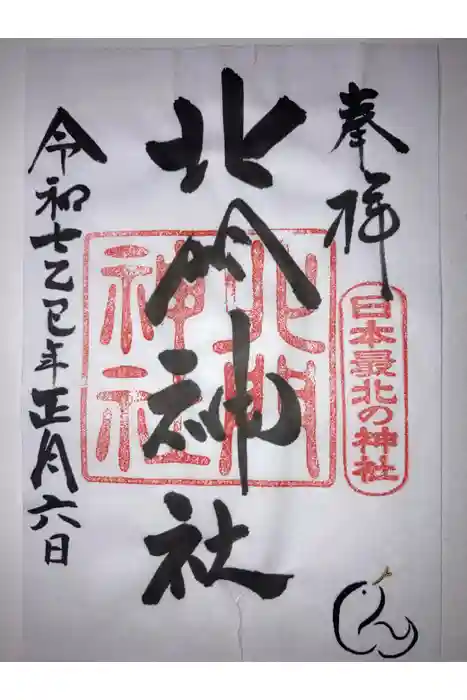 奉拝
日本最北の神社
北門神社
北門神社
令和七乙巳年正月六日